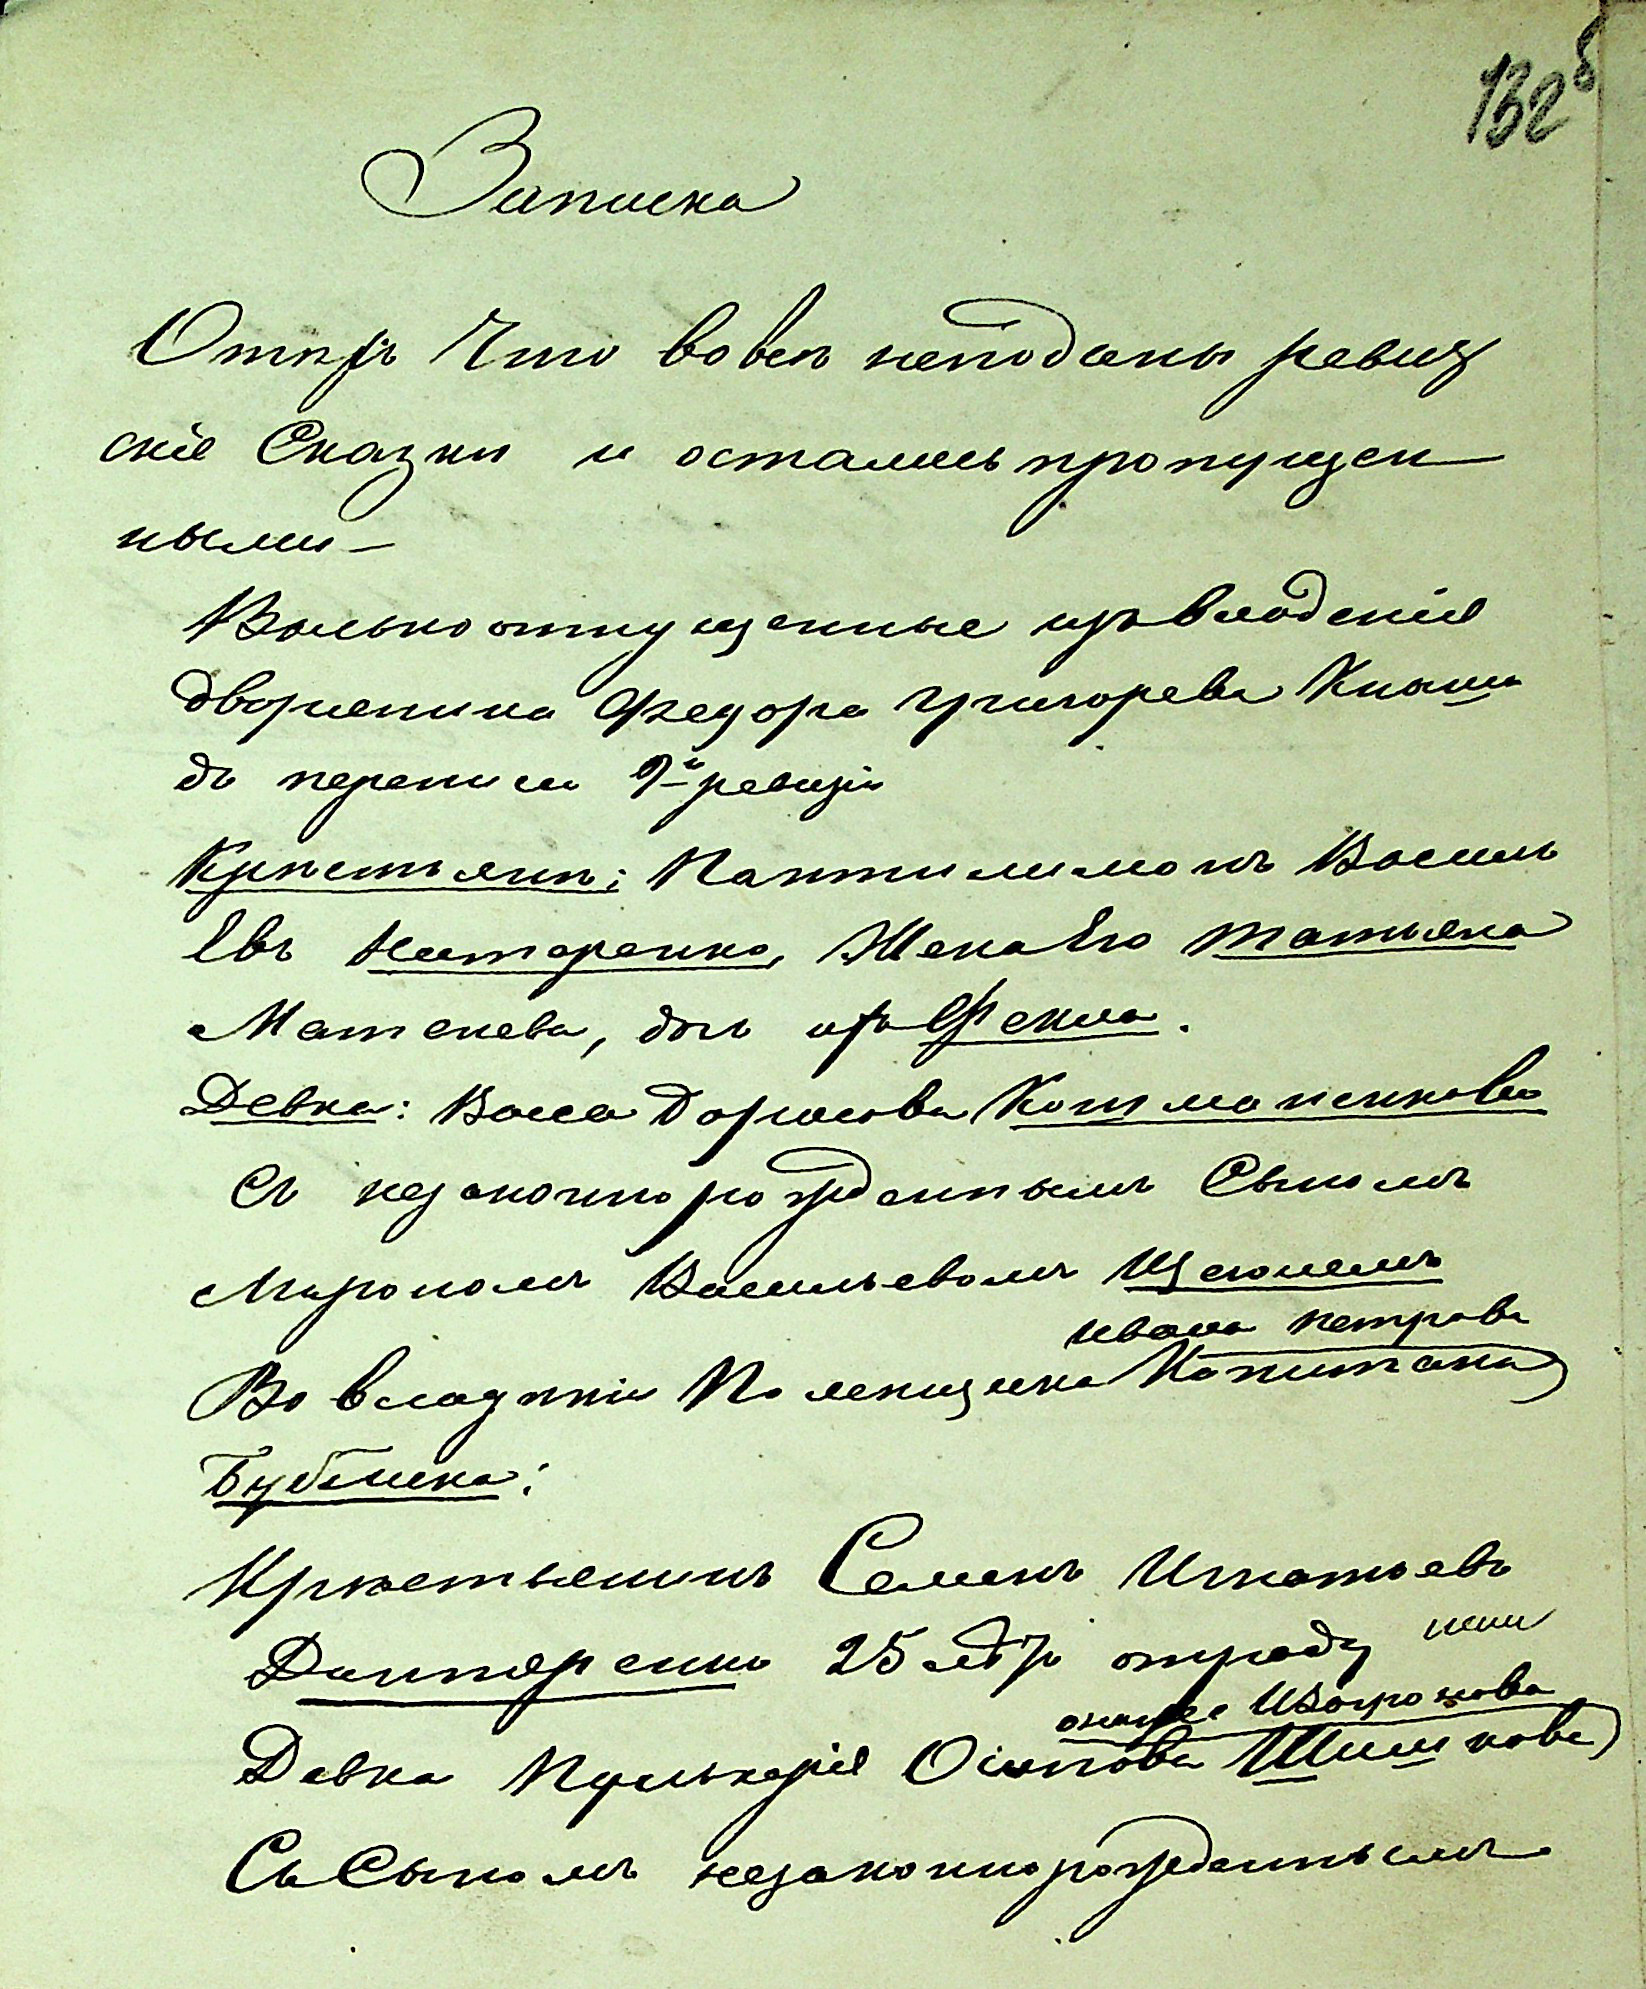 132 б
Записка
О тѣхъ Что вовсе неподаны ревиз
скіе Сказки и остались пропущен
ными —
Вольноотпущенные изъ владенія
дворянина Федора Григорева Кныша
до переписи 9й ревизіи
Крестьяне: Пантилимонъ Василь
Евъ Нестеренко, Жена Его Татьяна
Матенева, дочь ихъ Фекла.
Девка: Васса Борисова
Съ незаконнорожденнымъ Сыномъ
Мирономъ Васильевомъ
Ивана Петрова
Во владѣніи Помещика Капитана
Бублика:
Крестьянинъ Семенъ Игнатьевъ
25 летъ отроду
Девка Пулькерія Осипова Шишкова
Съ Сыномъ незаконнорожденнымъ